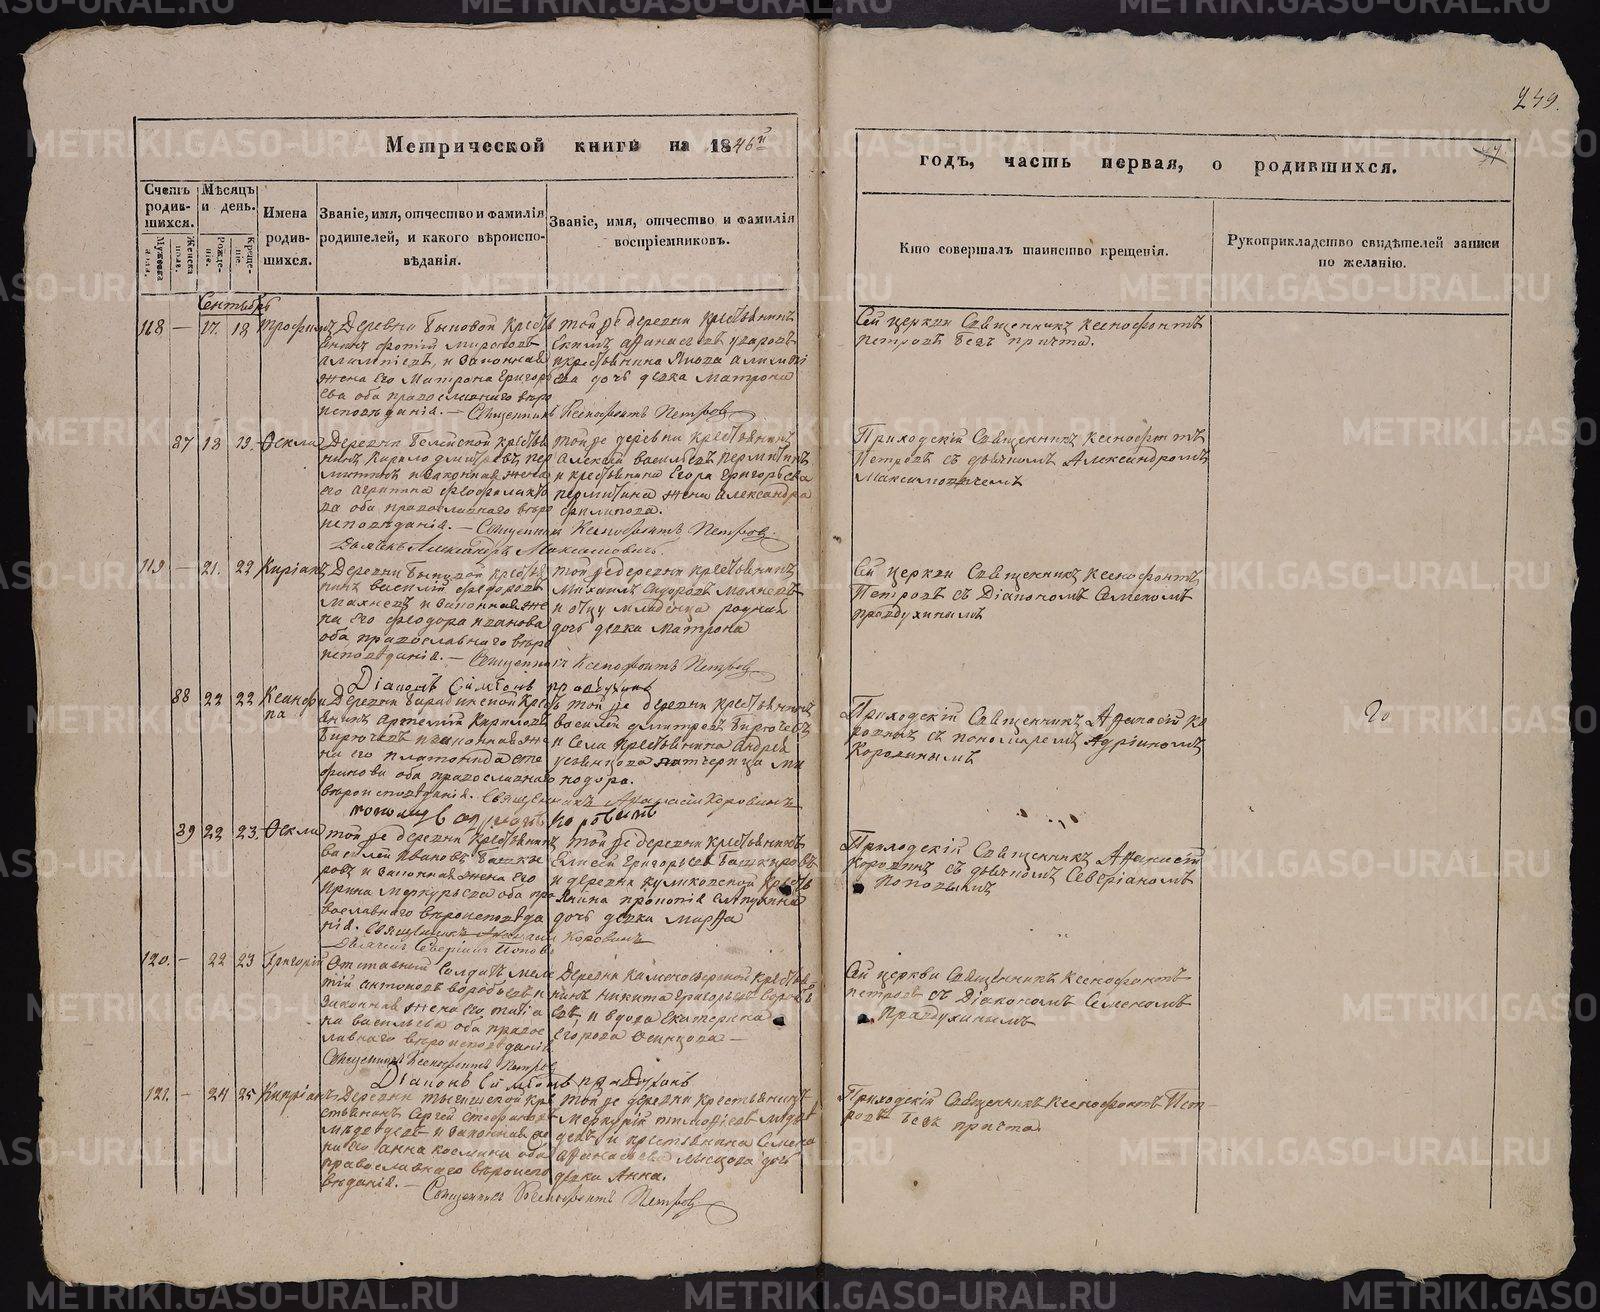 249.
Метрической книги на 1846й
годъ, часть первая, о родившихся.
Счетъ родив-шихся.
Мѣсяцъ и день.
Имена родив-шихся.
Званіе, имя, отчество и фамилія родителей, и какого вѣроиспо-вѣданія.
Званіе, имя, отчество и фамилія воспріемниковъ.
Кто совершалъ таинство крещенія.
Рукоприкладство свидѣтелей записи по желанію.
Мужеска пола.
Женска пола.
Рожде-ніе.
Креще-ніе.
Сентябрь
118 — 17. 18 Трофимъ
Деревни Быковой кресть
янинъ Фотій
и законная
жена его Матрона Григорь
ева оба православнаго вѣро
исповѣданія. — Священникъ Ксенофонтъ Петровъ
той же деревни крестьянинъ
дочь девка Матрона
Сей церкви Священникъ Ксенофонтъ
Петровъ безъ причта.
87 18 19. Фекла
Деревни крестья
нинъ Кирило Дмитріевъ
и законная жена
его Агрипина Феофилакто
ва оба православнаго вѣро
исповѣданія. — Священникъ Ксенофонтъ Петровъ.
Дьячекъ Александръ Максимовичъ.
той же деревни крестьянинъ
Алексей Васильевъ
и крестьянина Егора Григорьева
жена Александра
Филипова.
Приходскій Священникъ Ксенофонтъ
Петровъ съ дьячкомъ Александромъ
Максимовичемъ
119. — 21. 22 Кипріанъ
Деревни Быковой крестья
нинъ Василій Федоровъ
Махневъ и законная же
на его Феодора Иванова
оба православнаго вѣро
исповѣданія. — Священникъ Ксенофонтъ Петровъ
Діаконъ Симеонъ Правдухинъ
той же деревни крестьянинъ
Михаилъ Сидоровъ Махневъ
и отцу младенца родная
дочь девка Матрона
Сей церкви Священникъ Ксенофонтъ
Петровъ съ Діакономъ Семеномъ
Правдухинымъ
88 22 22
янинъ Артемій Кириловъ
Бирючевъ и законная же
на его Платонида Сте
фанова оба православнаго
вѣроисповѣданія. Священникъ Афанасій Коровинъ
той же деревни крестьянинъ
Василей Дмитревъ Бирючевъ
и села крестьянина Андрея
Приходскій Священникъ Афанасій Ко
ровинъ съ пономаремъ Адріаномъ
Коровинымъ
89 22 23. Фекла
той же деревни крестьянинъ
Василей Ивановъ Башки
ровъ и законная жена его
Ирина Меркурьева оба пра
вославнаго вѣроисповѣда
нія. Священникъ Афанасій Коровинъ
Дьячекъ Северіанъ Поповъ
той же деревни крестьянинъ
Елисей Григорьевъ Башкировъ
и деревни Куликовской кресть
янина Прокопія
дочь девка Марфа
Приходскій Священникъ Афанасій
Коровинъ съ дьячкомъ Северіаномъ
Поповымъ
120. — 22 23 Григорій
Отставный Солдатъ
Антоновъ Воробьевъ и
законная жена его Татіа
на Васильева оба правос
лавнаго вѣроисповѣданія
Священникъ Ксенофонтъ Петровъ
Діаконъ Симеонъ Правдухинъ
нинъ Никита Григорьевъ
и вдова Екатерина
Егорова Осинцова —
Сей церкви Священникъ Ксенофонтъ
Петровъ съ Діакономъ Семеномъ
Правдухинымъ
121. — 24 25 Кипріанъ
Деревни кре
стьянинъ Сергей Стефановъ
и законная же
на его Анна Космина оба
православнаго вѣроиспо
вѣданія. — Священникъ Ксенофонтъ Петровъ
той же деревни крестьянинъ
Меркурій Тимофеевъ
и крестьянина Семена
Афанасьева дочь
девка Анна.
Приходскій Священникъ Ксенофонтъ Пет-
ровъ безъ причта.
METRIKI.GASO-URAL.RU